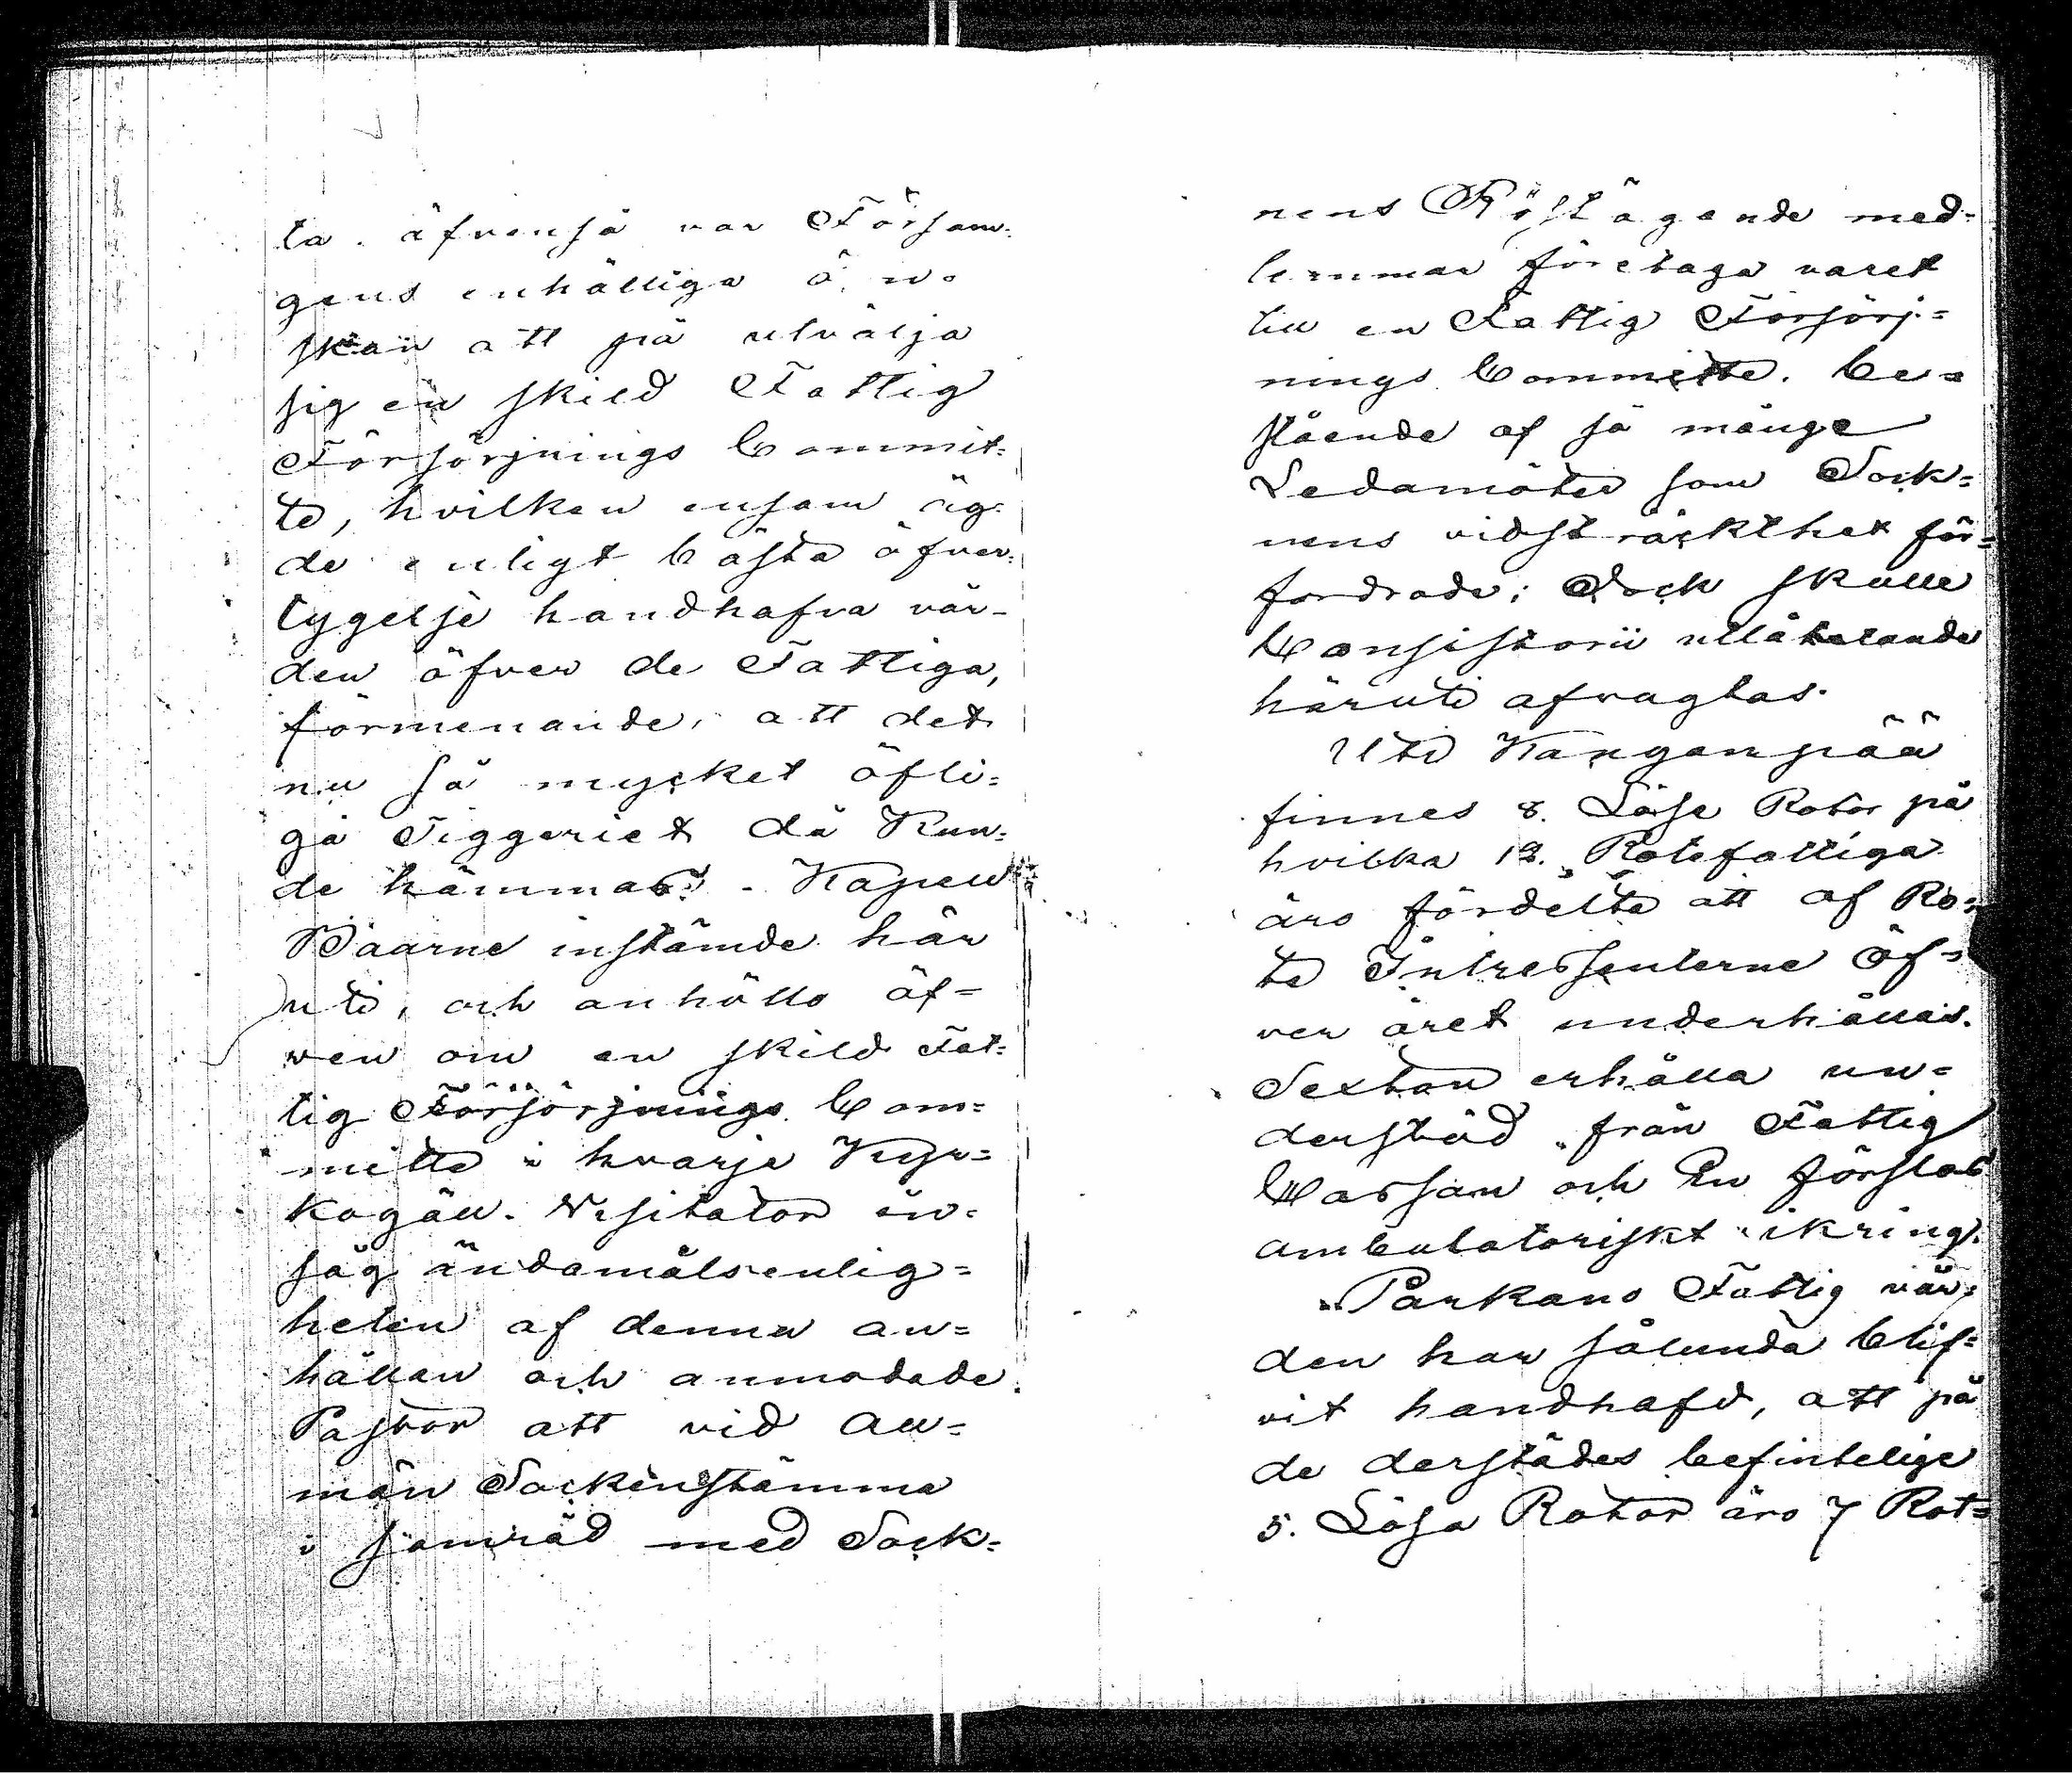 ta. äfvenså var Försam=
gens enhälliga ön=
skan att få utvälja
sig en skild Fattig
Försörjnings Commit=
te, hvilken ensam äg=
de enligt bästa öfver=
tygelse handhafva vår=
den öfver de Fattiga,
förmenande, att det
nu så mycket öfli=
ga Tiggeriet då Kun=
de hämmas. Kapell
Boarne instämde här
uti, och anhöllo äf=
ven om en skild Fat=
tig Försörjnings Com=
mitte i hvarje Kyr=
kogäll. Visitator in=
såg ändamålsenlig=
heten af denna an=
hållan och anmodade
Pastor att vid all=
män Sockenstämma
i samråd med Sock=
nens Röstägande med=
lemmar företaga valet
till en Fattig Försörj=
nings Committe. be=
stående af så månge
Ledamöter som Sock=
nens vidsträckthet för=
fordrade; Dock skulle
Consistorii utlåtande
häruti afvagtas.
Uti Kanganpää
finnes 8. Löse Rotor på
hvilka 12. Rotefattiga
äro fördelte att af Ro=
te Intressenterne öf=
ver året underhållas.
Sexton erhålla un=
derstöd från Fattig
Cassan och En förslas
ambulatoriskt ikring.
Parkano Fattig vår=
den har sålunda blif=
vit handhafd, att på
de derstädes befintelige
5. Lösa Rotor äro 7 Rot=